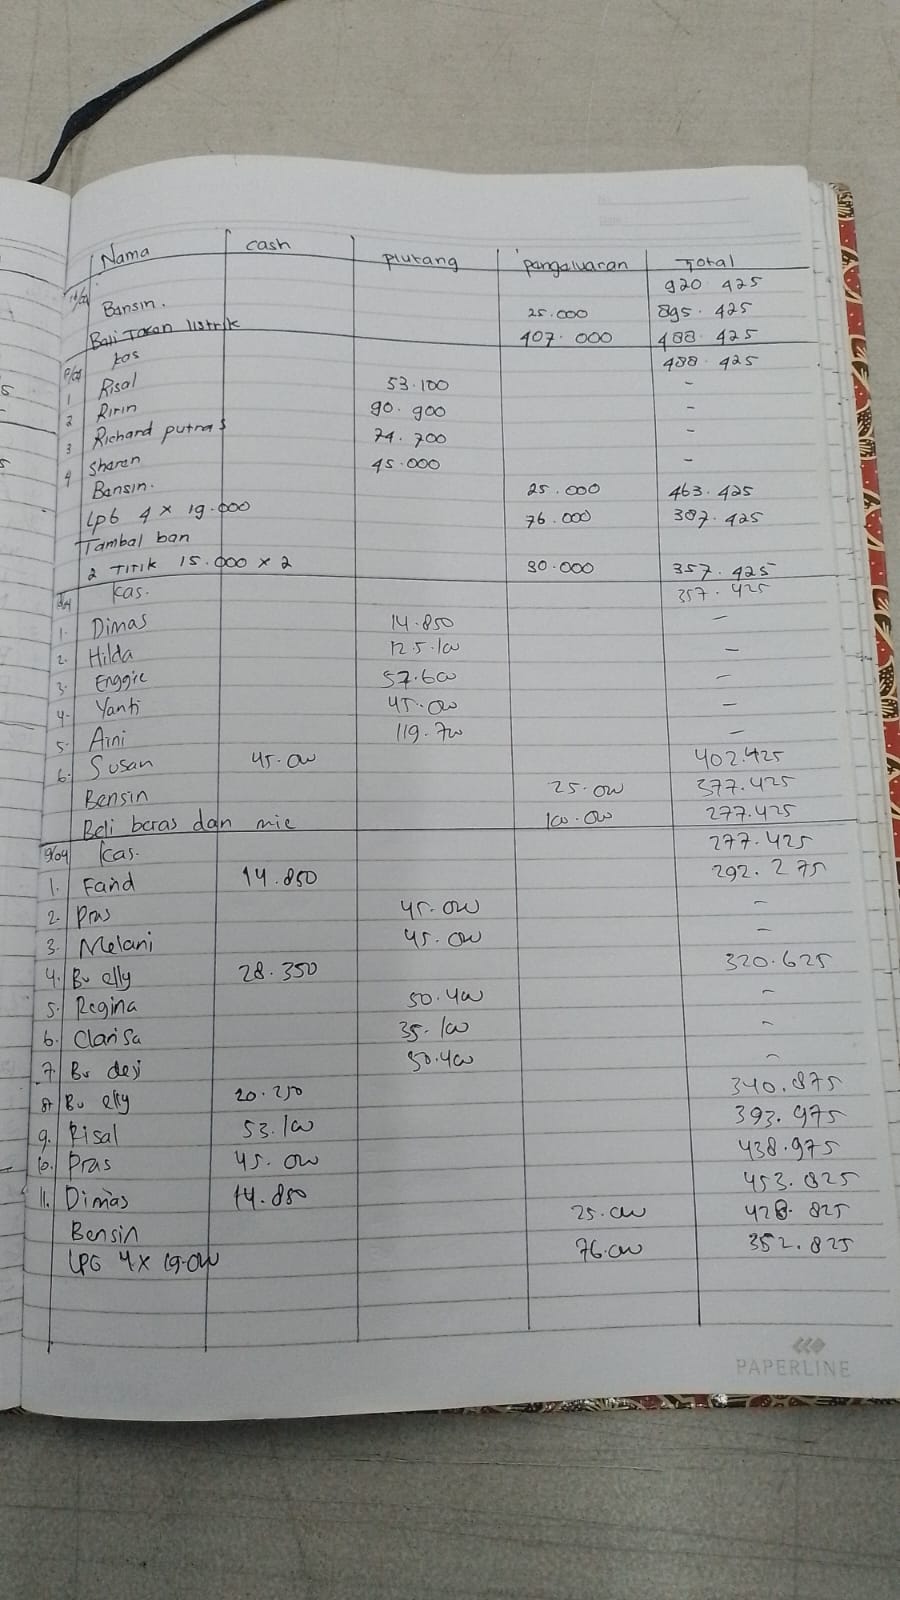 Nama cash piutang pengeluaran Total
920 425
Bensin. 25.000 895.425
Beli Token listrik 407.000 488.425
kas 488.425
1 Risal 53.100 -
2 Ririn 90.900 -
3 Richard putra S 74.700 -
4 Sharen 45.000 -
Bensin. 25.000 463.425
LPG 4 x 19.000 76.000 387.425
Tambal ban
2 Titik 15.000 x 2 30.000 357.425
kas. 357.425
1. Dimas 14.850 -
2. Hilda 125.100 -
3. Enggie 57.600 -
4. Yanti 45.000 -
5. Aini 119.700 -
6. Susan 45.000 402.425
Bensin 25.000 377.425
Beli beras dan mie 100.000 277.425
9/04 kas. 277.425
1. Farid 14.850 292.275
2. Pras 45.000 -
3. Melani 45.000 -
4. Bu elly 28.350 320.625
5. Regina 50.400 -
6. Clarisa 35.100 -
7. Bu desi 50.400 -
8 Bu elly 20.250 340.875
9. Risal 53.100 393.975
10. Pras 45.000 438.975
11. Dimas 14.850 453.825
Bensin 25.000 428.825
LPG 4 x 19.000 76.000 352.825
PAPERLINE